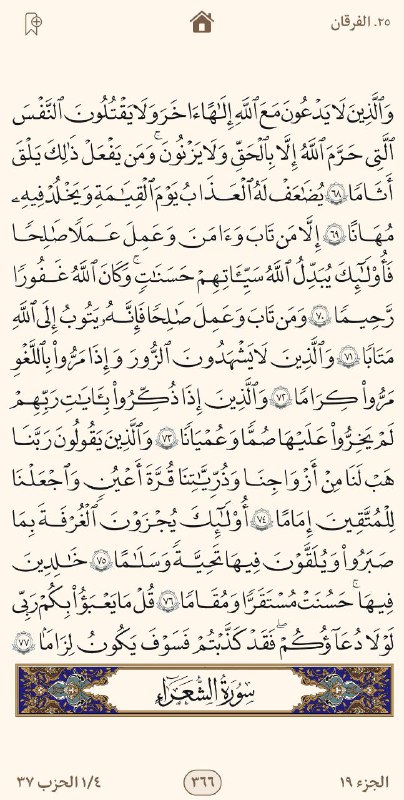 ٢٥. الفرقان
وَٱلَّذِينَ لَا يَدْعُونَ مَعَ ٱللَّهِ إِلَٰهًا ءَاخَرَ وَلَا يَقْتُلُونَ ٱلنَّفْسَ
ٱلَّتِى حَرَّمَ ٱللَّهُ إِلَّا بِٱلْحَقِّ وَلَا يَزْنُونَ ۚ وَمَن يَفْعَلْ ذَٰلِكَ يَلْقَ
أَثَامًا ٦٨ يُضَٰعَفْ لَهُ ٱلْعَذَابُ يَوْمَ ٱلْقِيَٰمَةِ وَيَخْلُدْ فِيهِۦ
مُهَانًا ٦٩ إِلَّا مَن تَابَ وَءَامَنَ وَعَمِلَ عَمَلًا صَٰلِحًا
فَأُو۟لَٰٓئِكَ يُبَدِّلُ ٱللَّهُ سَيِّـَٔاتِهِمْ حَسَنَٰتٍ ۗ وَكَانَ ٱللَّهُ غَفُورًا
رَّحِيمًا ٧٠ وَمَن تَابَ وَعَمِلَ صَٰلِحًا فَإِنَّهُۥ يَتُوبُ إِلَى ٱللَّهِ
مَتَابًا ٧١ وَٱلَّذِينَ لَا يَشْهَدُونَ ٱلزُّورَ وَإِذَا مَرُّوا۟ بِٱللَّغْوِ
مَرُّوا۟ كِرَامًا ٧٢ وَٱلَّذِينَ إِذَا ذُكِّرُوا۟ بِـَٔايَٰتِ رَبِّهِمْ
لَمْ يَخِرُّوا۟ عَلَيْهَا صُمًّا وَعُمْيَانًا ٧٣ وَٱلَّذِينَ يَقُولُونَ رَبَّنَا
هَبْ لَنَا مِنْ أَزْوَٰجِنَا وَذُرِّيَّٰتِنَا قُرَّةَ أَعْيُنٍ وَٱجْعَلْنَا
لِلْمُتَّقِينَ إِمَامًا ٧٤ أُو۟لَٰٓئِكَ يُجْزَوْنَ ٱلْغُرْفَةَ بِمَا
صَبَرُوا۟ وَيُلَقَّوْنَ فِيهَا تَحِيَّةً وَسَلَٰمًا ٧٥ خَٰلِدِينَ
فِيهَا ۚ حَسُنَتْ مُسْتَقَرًّا وَمُقَامًا ٧٦ قُلْ مَا يَعْبَؤُا۟ بِكُمْ رَبِّى
لَوْلَا دُعَآؤُكُمْ ۖ فَقَدْ كَذَّبْتُمْ فَسَوْفَ يَكُونُ لِزَامًۢا ٧٧
سُورَةُ الشُّعَرَاءِ
الجزء ١٩
٣٦٦
١/٤ الحزب ٣٧